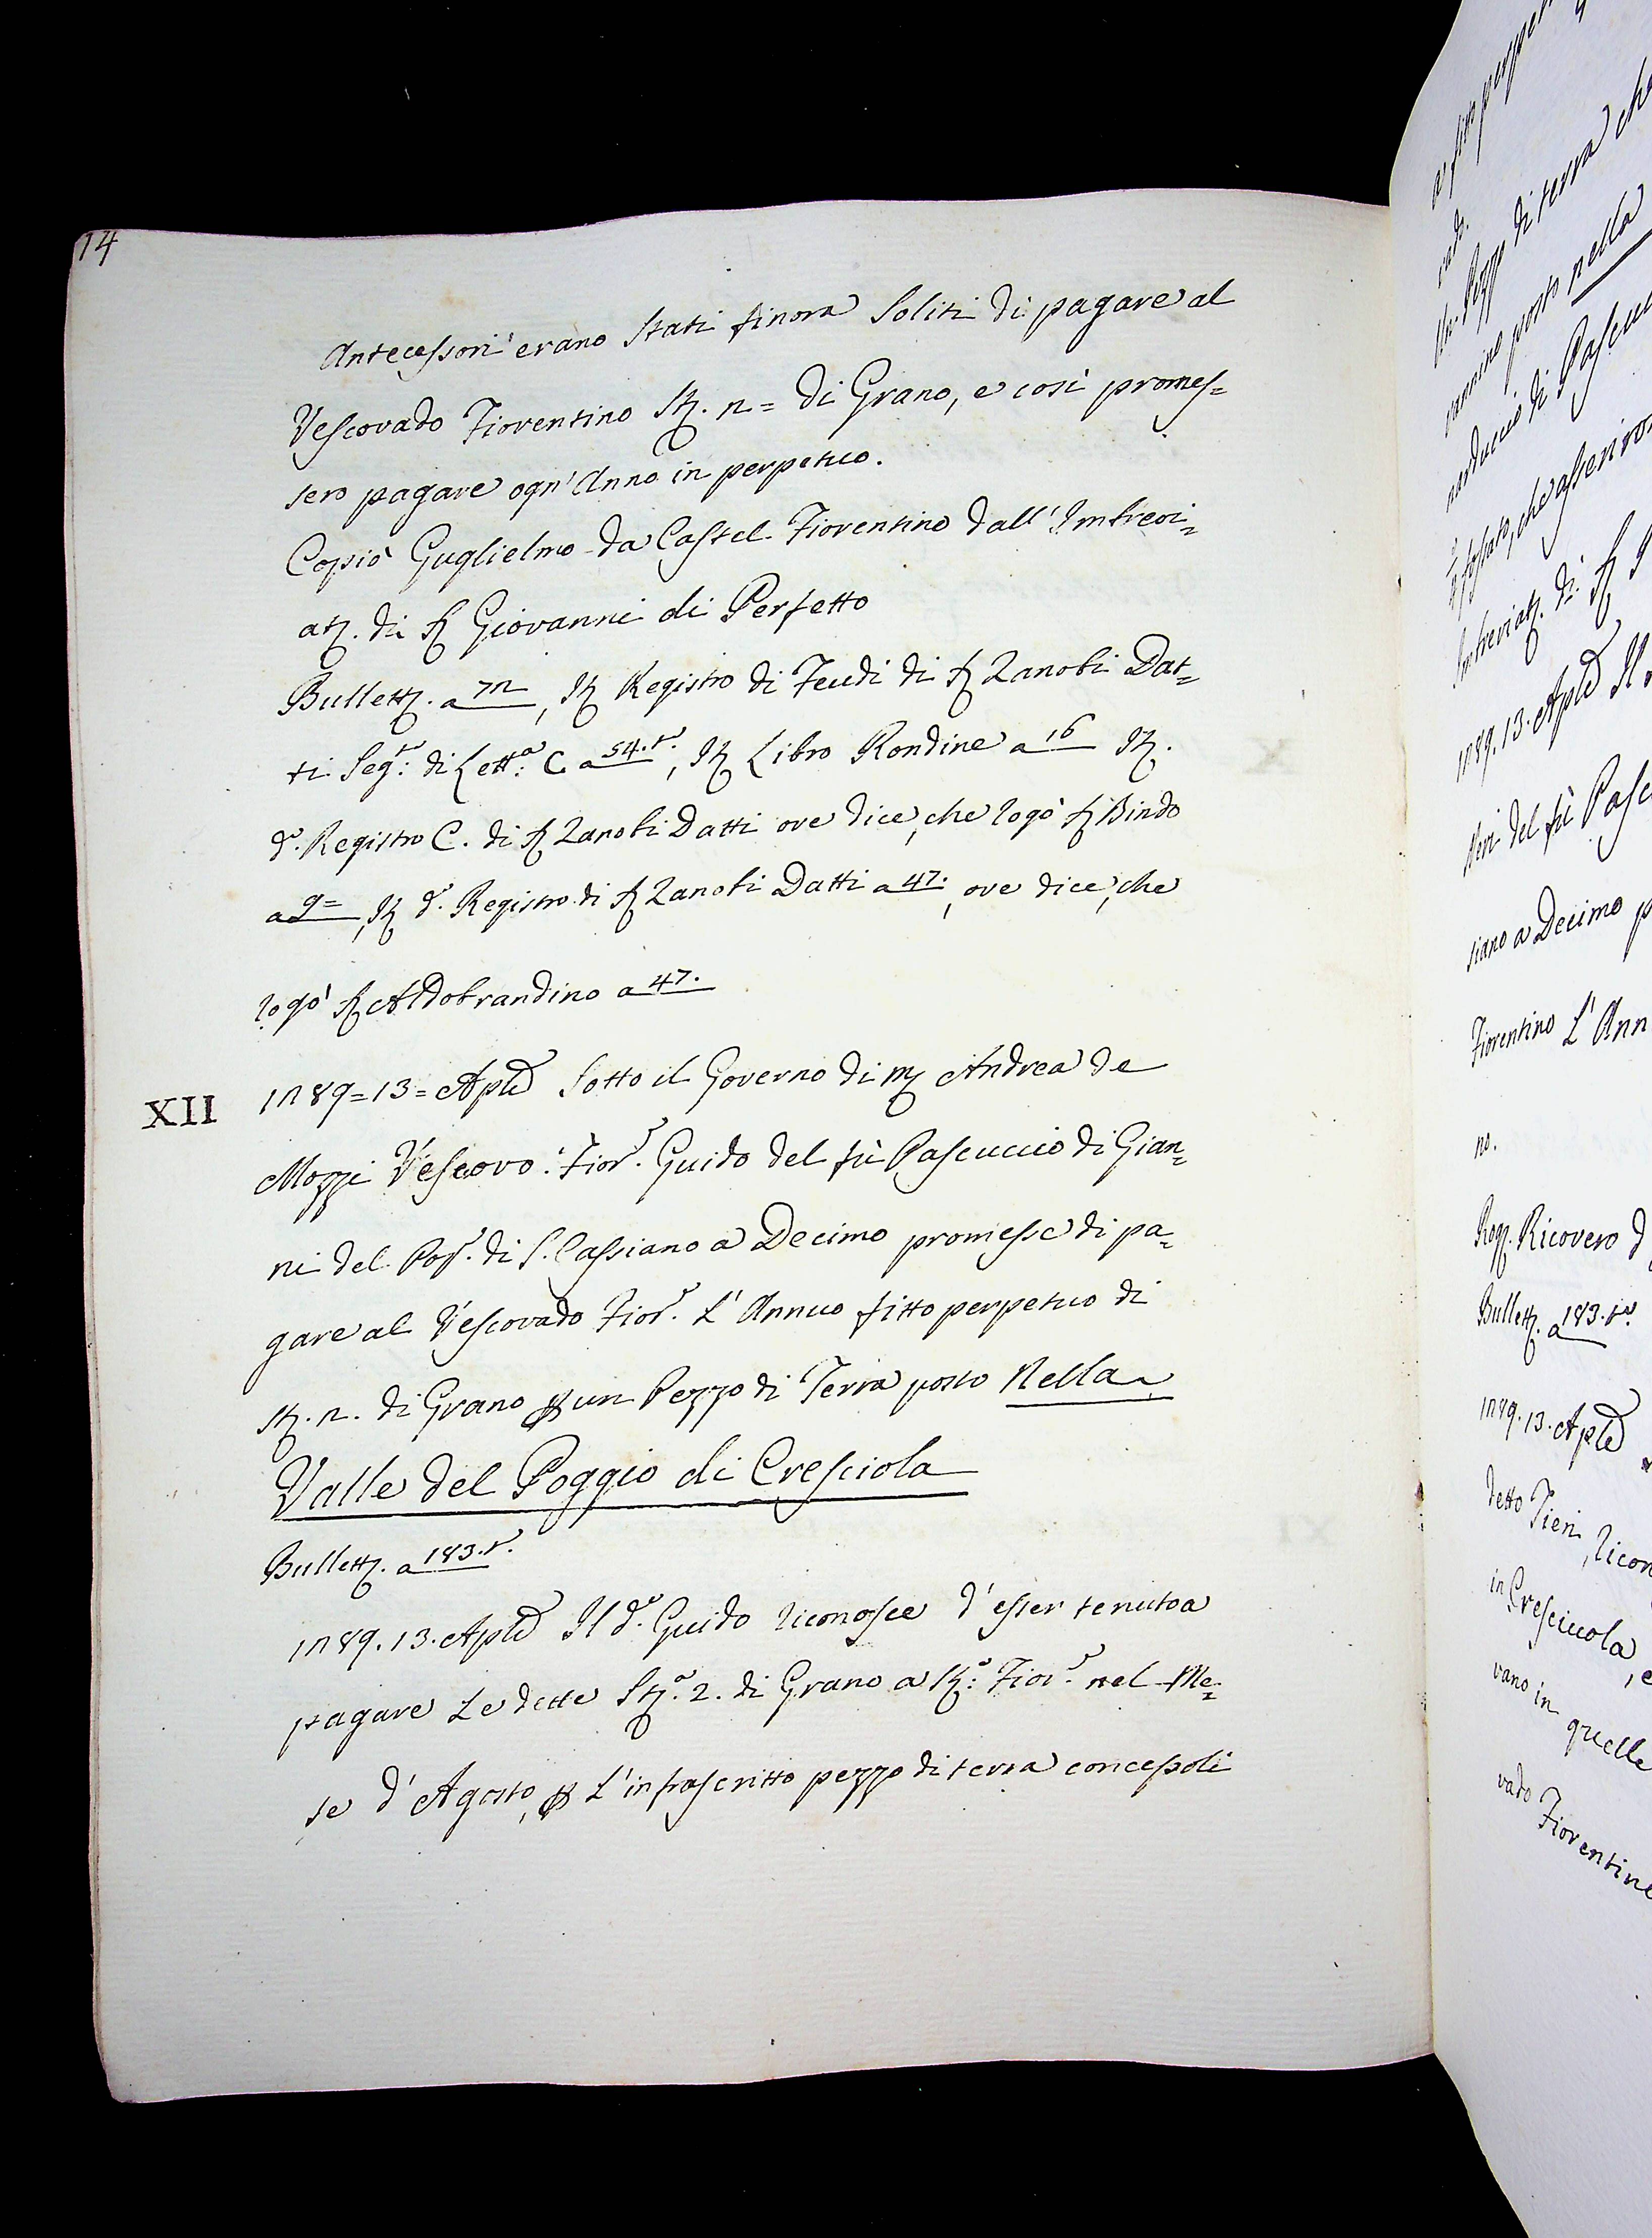 14
Antecessori erano Stati finora Soliti di pagare al
Vescovado Fiorentino St. 2 = di Grano, e così promes=
sero pagare ogn'Anno in perpetuo.
Copiò Guglielmo da Castel Fiorentino dall'Imbrevi=
atz. di Sr Giovanni di Perfetto
Bullett. a 72, It Registro di Feudi di Sr Zanobi Dat=
ti Seg.to di Lett.a C. a 54.t., It Libro Rondine a 16 It.
d.o Registro C. di Sr Zanobi Datti ove dice, che rogò Sr Bindo
a 9=, It d.o Registro di Sr Zanobi Datti a 47., ove dice, che
rogò Sr Aldobrandino a 47.
XII 1289=13=Aple Sotto il Governo di Mr Andrea de
Mozzi Vescovo Fior.o Guido del fù Pascuccio di Gian=
ni del Pop.o di S. Cassiano a Decimo promesse di pa=
gare al Vescovado Fior.o L'Annuo fitto perpetuo di
St. 2. di Grano p un Pezzo di Terra posto Nella
Valle del Poggio di Cresciola
Bullett. a 183.t.
1289. 13. Aple Il d.o Guido riconosce d'esser tenuto a
pagare Le dette St.a 2. di Grano a St.o Fior.o nel Me=
se d'Agosto, p L'infrascritto pezzo di terra concessoli
Un Pezzo di terra che
posto nella
1289. 13. Aple Il
Neri del fù Pasc
siano a Decimo p
Fiorentino L'Ann
no.
Rog. Ricovero d
Bullett. a 183.t.
1289. 13. Aple
detto Tieri, ricon
in Cresciuola, e
vano in quelle
vado Fiorentino